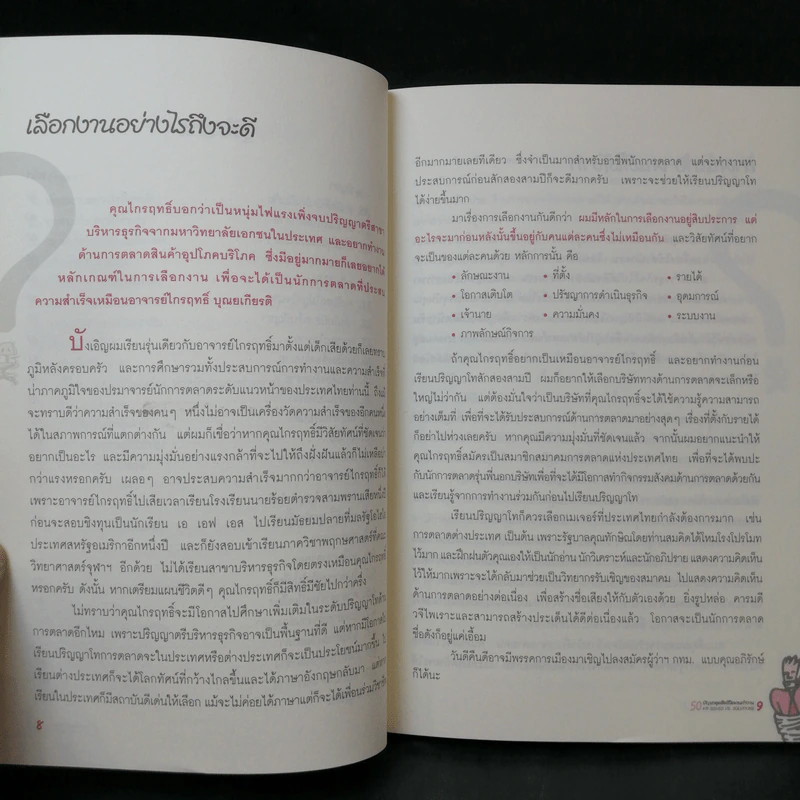 เลือกงานอย่างไรถึงจะดี
คุณไกรฤทธิ์บอกว่าเป็นหนุ่มไฟแรงเพิ่งจบปริญญาตรีสาขา
บริหารธุรกิจจากมหาวิทยาลัยเอกชนในประเทศ และอยากทำงาน
ด้านการตลาดสินค้าอุปโภคบริโภค ซึ่งมีอยู่มากมายก็เลยอยากได้
หลักเกณฑ์ในการเลือกงาน เพื่อจะได้เป็นนักการตลาดที่ประสบ
ความสำเร็จเหมือนอาจารย์ไกรฤทธิ์ บุณยเกียรติ
บังเอิญผมเรียนรุ่นเดียวกับอาจารย์ไกรฤทธิ์มาตั้งแต่เด็กเสียด้วยก็เลยทราบ
ภูมิหลังครอบครัว และการศึกษารวมทั้งประสบการณ์การทำงานและความสำเร็จ
น่าภาคภูมิใจของปรมาจารย์นักการตลาดระดับแนวหน้าของประเทศไทยท่านนี้ ถึงแม้
จะทราบดีว่าความสำเร็จของคนๆ หนึ่งไม่อาจเป็นเครื่องวัดความสำเร็จของอีกคนหนึ่ง
ได้ในสภาพการณ์ที่แตกต่างกัน แต่ผมก็เชื่อว่าหากคุณไกรฤทธิ์มีวิสัยทัศน์ที่ชัดเจนว่า
อยากเป็นอะไร และมีความมุ่งมั่นอย่างแรงกล้าที่จะไปให้ถึงฝั่งฝันแล้วก็ไม่เหลือบ่า
กว่าแรงหรอกครับ เผลอๆ อาจประสบความสำเร็จมากกว่าอาจารย์ไกรฤทธิ์ก็ได้
เพราะอาจารย์ไกรฤทธิ์ไปเสียเวลาเรียนโรงเรียนนายร้อยตำรวจสามพรานเสียหนึ่งปี
ก่อนจะสอบชิงทุนเป็นนักเรียน เอ เอฟ เอส ไปเรียนมัธยมปลายที่มลรัฐโอไฮโอ
ประเทศสหรัฐอเมริกาอีกหนึ่งปี และก็ยังสอบเข้าเรียนภาควิชาพฤกษศาสตร์ที่คณะ
วิทยาศาสตร์จุฬาฯ อีกด้วย ไม่ได้เรียนสาขาบริหารธุรกิจโดยตรงเหมือนคุณไกรฤทธิ์
หรอกครับ ดังนั้น หากเตรียมแผนชีวิตดีๆ คุณไกรฤทธิ์ก็มีสิทธิ์มีชัยไปกว่าครึ่ง
ไม่ทราบว่าคุณไกรฤทธิ์จะมีโอกาสไปศึกษาเพิ่มเติมในระดับปริญญาโทด้าน
การตลาดอีกไหม เพราะปริญญาตรีบริหารธุรกิจอาจเป็นพื้นฐานที่ดี แต่หากมีโอกาสไป
เรียนปริญญาโทการตลาดจะในประเทศหรือต่างประเทศก็จะเป็นประโยชน์มากขึ้น ไป
เรียนต่างประเทศก็จะได้โลกทัศน์ที่กว้างไกลขึ้นและได้ภาษาอังกฤษกลับมา แต่หาก
เรียนในประเทศก็มีสถาบันดีเด่นให้เลือก แม้จะไม่ค่อยได้ภาษาแต่ก็จะได้เพื่อนร่วมวิชาชีพ
8
อีกมากมายเลยทีเดียว ซึ่งจำเป็นมากสำหรับอาชีพนักการตลาด แต่จะทำงานหา
ประสบการณ์ก่อนสักสองสามปีก็จะดีมากครับ เพราะจะช่วยให้เรียนปริญญาโท
ได้ง่ายขึ้นมาก
มาเรื่องการเลือกงานกันดีกว่า ผมมีหลักในการเลือกงานอยู่สิบประการ แต่
อะไรจะมาก่อนหลังนั้นขึ้นอยู่กับคนแต่ละคนซึ่งไม่เหมือนกัน และวิสัยทัศน์ที่อยาก
จะเป็นของแต่ละคนด้วย หลักการนั้น คือ
• ลักษณะงาน • ที่ตั้ง • รายได้
• โอกาสเติบโต • ปรัชญาการดำเนินธุรกิจ • อุดมการณ์
• เจ้านาย • ความมั่นคง • ระบบงาน
• ภาพลักษณ์กิจการ
ถ้าคุณไกรฤทธิ์อยากเป็นเหมือนอาจารย์ไกรฤทธิ์ และอยากทำงานก่อน
เรียนปริญญาโทสักสองสามปี ผมก็อยากให้เลือกบริษัททางด้านการตลาดจะเล็กหรือ
ใหญ่ไม่ว่ากัน แต่ต้องมั่นใจว่าเป็นบริษัทที่คุณไกรฤทธิ์จะได้ใช้ความรู้ความสามารถ
อย่างเต็มที่ เพื่อที่จะได้รับประสบการณ์ด้านการตลาดมาอย่างสุดๆ เรื่องที่ตั้งกับรายได้
ก็อย่าไปห่วงเลยครับ หากคุณมีความมุ่งมั่นที่ชัดเจนแล้ว จากนั้นผมอยากแนะนำให้
คุณไกรฤทธิ์สมัครเป็นสมาชิกสมาคมการตลาดแห่งประเทศไทย เพื่อที่จะได้พบปะ
กับนักการตลาดรุ่นพี่นอกบริษัทเพื่อที่จะได้มีโอกาสทำกิจกรรมสังคมด้านการตลาดด้วยกัน
และเรียนรู้จากการทำงานร่วมกันก่อนไปเรียนปริญญาโท
เรียนปริญญาโทก็ควรเลือกเมเจอร์ที่ประเทศไทยกำลังต้องการมาก เช่น
การตลาดต่างประเทศ เป็นต้น เพราะรัฐบาลคุณทักษิณโดยท่านสมคิดได้โหมโรงโปรโมท
ไว้มาก และฝึกฝนตัวคุณเองให้เป็นนักอ่าน นักวิเคราะห์และนักอภิปราย แสดงความคิดเห็น
ไว้ให้มากเพราะจะได้กลับมาช่วยเป็นวิทยากรรับเชิญของสมาคม ไปแสดงความคิดเห็น
ด้านการตลาดอย่างต่อเนื่อง เพื่อสร้างชื่อเสียงให้กับตัวเองด้วย ยิ่งรูปหล่อ คารมดี
วจีไพเราะและสามารถสร้างประเด็นได้ดีต่อเนื่องแล้ว โอกาสจะเป็นนักการตลาด
ชื่อดังก็อยู่แค่เอื้อม
วันดีคืนดีอาจมีพรรคการเมืองมาเชิญไปลงสมัครผู้ว่าฯ กทม. แบบคุณอภิรักษ์
ก็ได้นะ
50
9